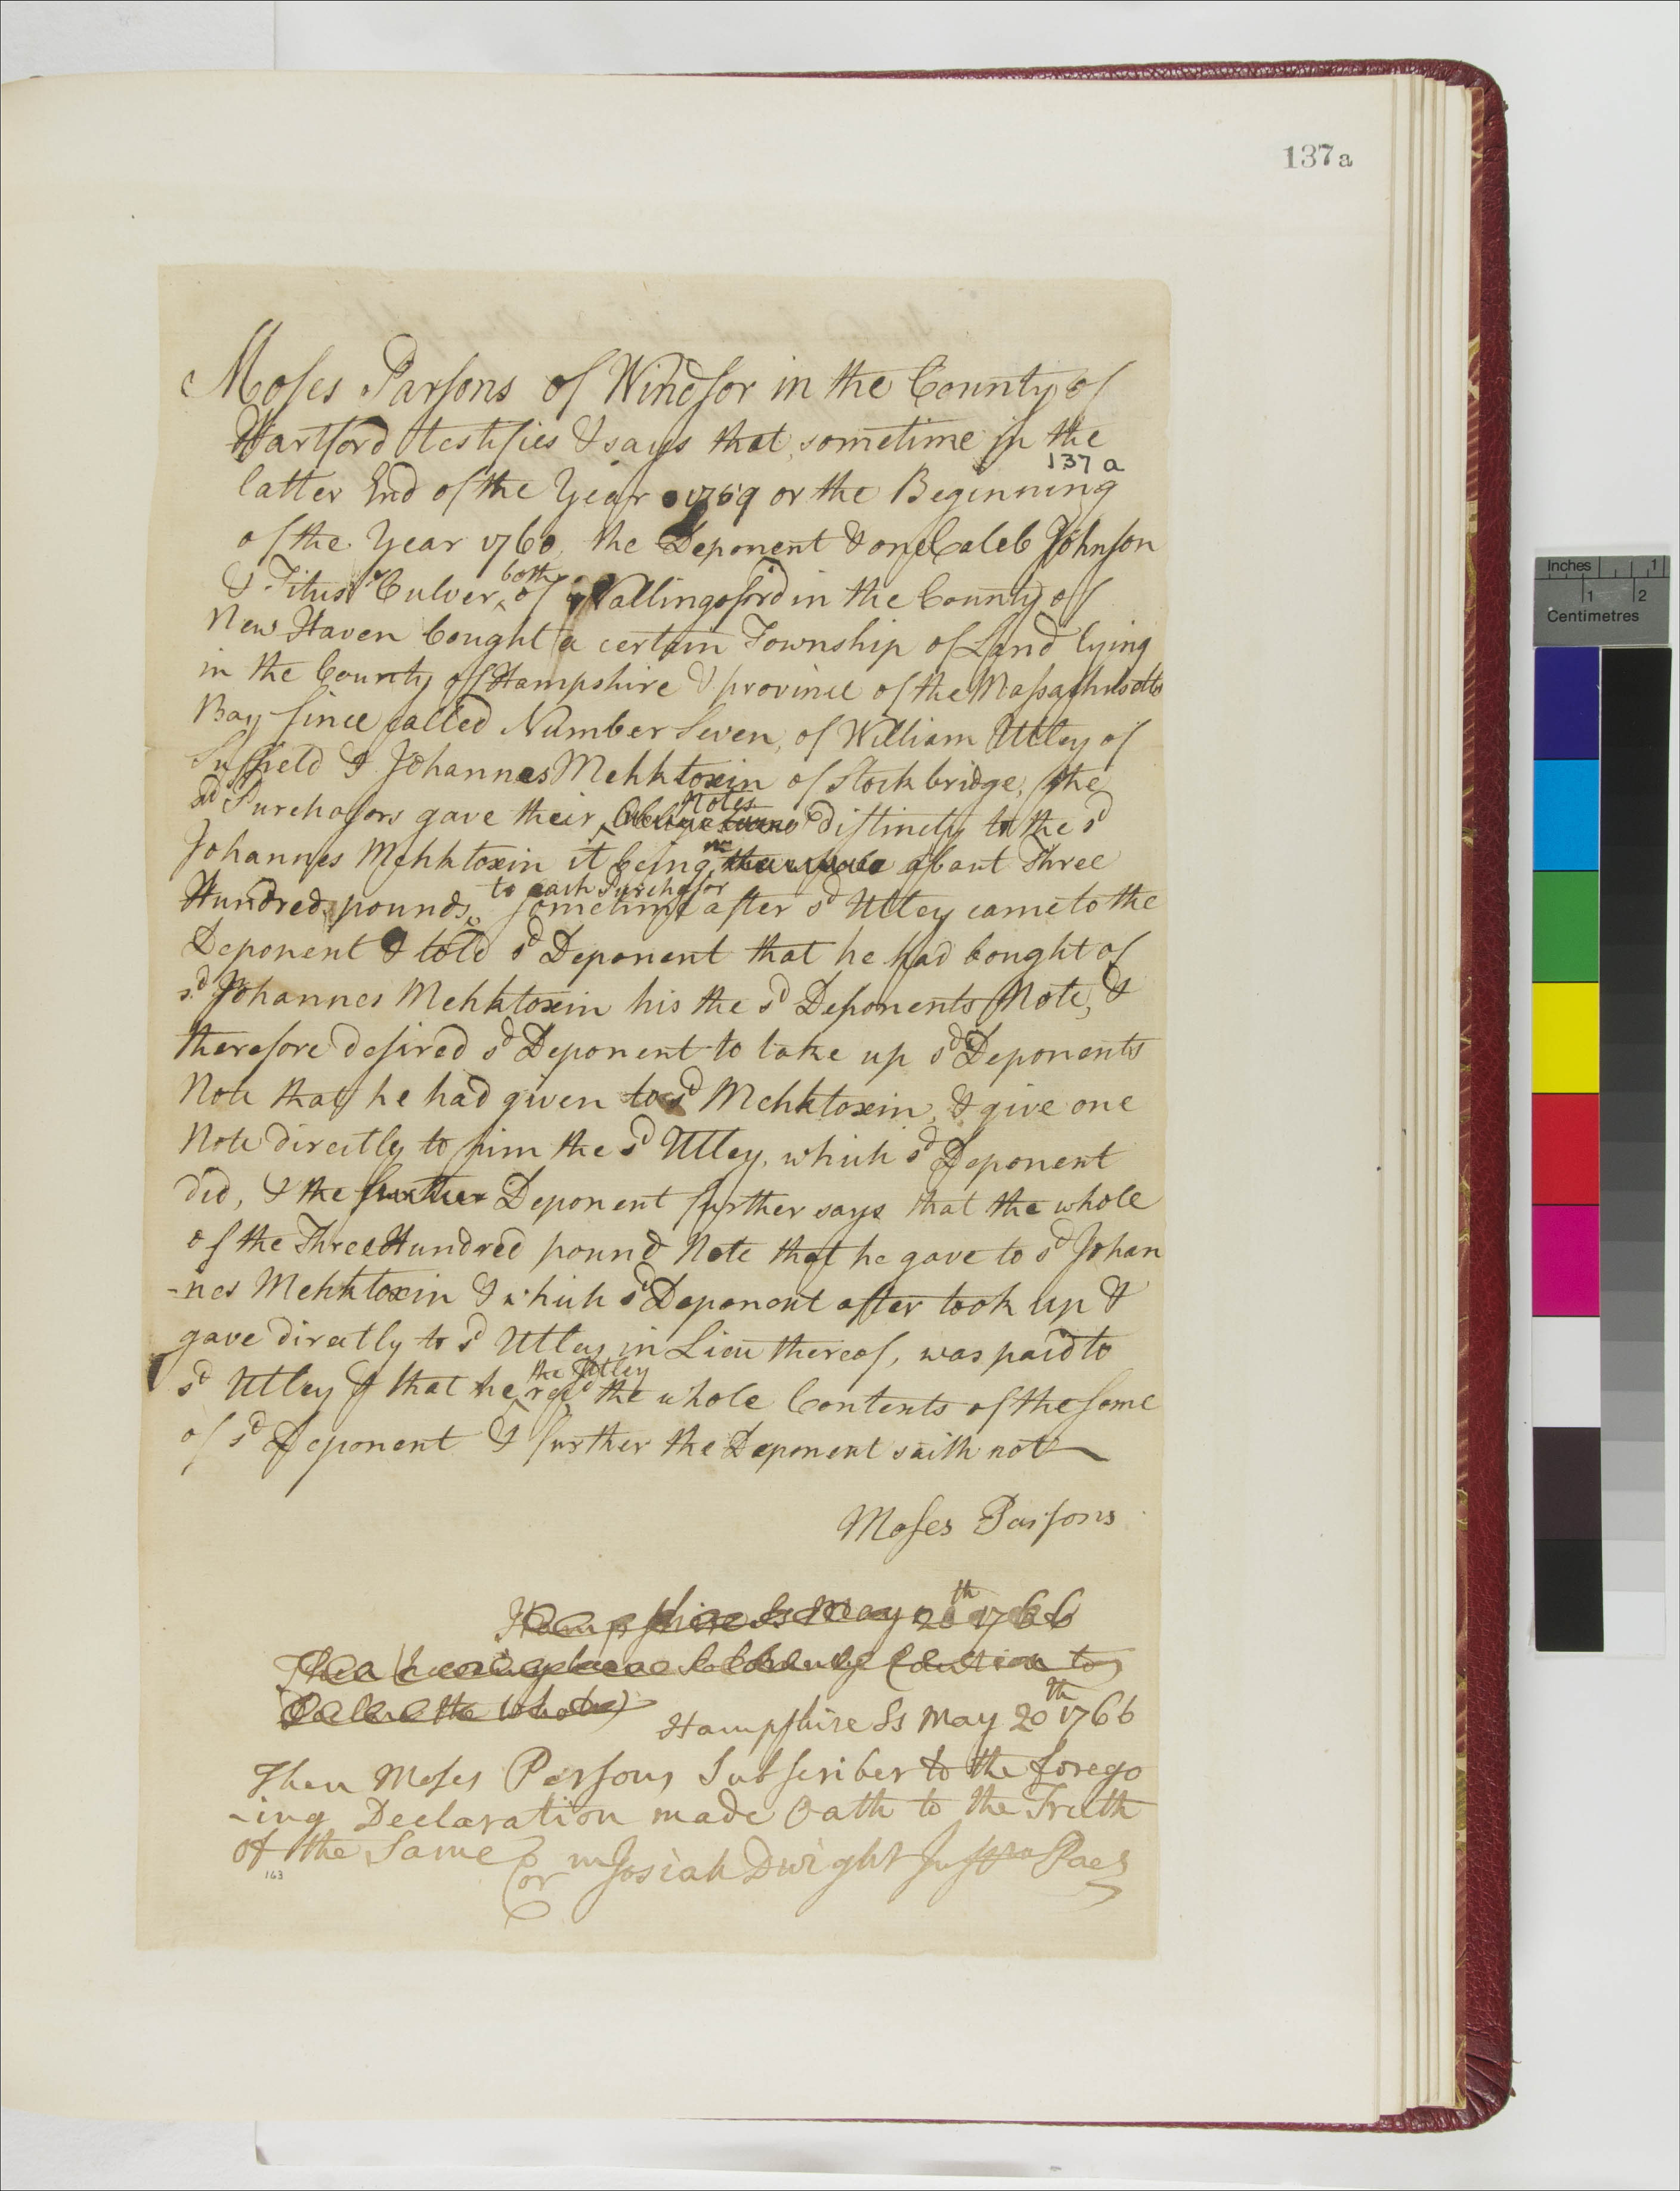 137a
Moses Parsons of Windsor in the County of
Hartford testifies & says that sometime in the
137 a
latter End of the Year 1759 or the Beginning
of the Year 1760, the Deponent & one Caleb Johnson
& Titus Culver, both of Wallingsford in the County of
New Haven bought a certain Township of Land lying
in the County of Hampshire & province of the Massachusetts
Bay since called Number Seven, of William Utley of
Suffield & Johannes Mehktoxin of Stockbridge, the
sd Purchasors gave their Notes distinctly to the sd
Johannes Mehktoxin it being about Three
Hundred pounds, to each Purchasor sometime after sd Utley came to the
Deponent & told sd Deponent that he had bought of
sd Johannes Mehktoxin his the sd Deponents Note, &
therefore desired sd Deponent to take up sd Deponents
Note that he had given to sd Mehktoxin, & give one
Note directly to him the sd Utley, which sd Deponent
did, & the further Deponent further says that the whole
of the Three Hundred pound Note that he gave to sd Johan
-nes Mehktoxin & which sd Deponent after took up &
gave directly to sd Utley in Lieu thereof, was paid to
sd Utley & that he the sd Utley recd the whole Contents of the same
of sd Deponent & further the Deponent saith not
Moses Parsons
Hampshire Ss May 20th 1766
Hampshire Ss May 20th 1766
Then Moses Parsons Subscriber to the forego
-ing Declaration made Oath to the Truth
of the Same
Cor m Josiah Dwight Jus Paes
163
Inches 1
1 2
Centimetres